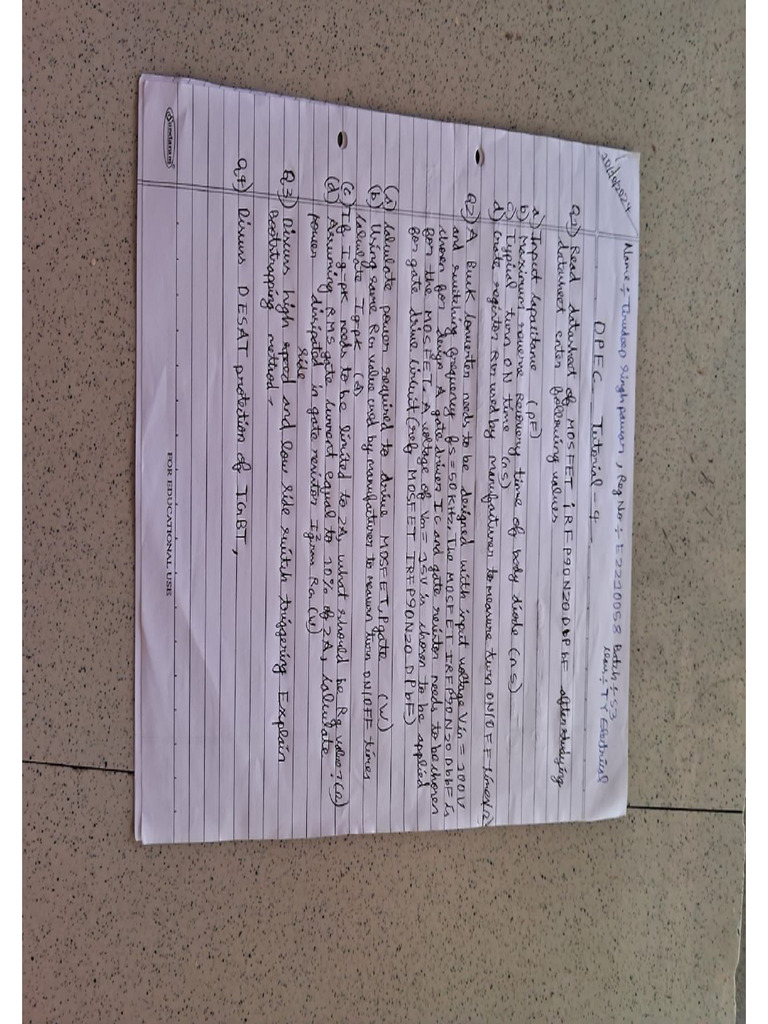 20/10/2024
Name :- Singh pawar, Reg No :- E2210058 Batch :- S3
DPEC Tutorial - 4 :- TY Electrical
Q1) Read datasheet of MOSFET iRFP90N20DbPbF after studying
datasheet enter following values
a) Input Capacitance (pF)
b) Maximum reverse recovery time of body diode (ns)
c) Typical turn ON time (ns)
d) Gate resistor RG used by manufacturer to measure turn ON/OFF times(Ω)
Q2) A Buck Converter needs to be designed with input voltage Vin = 100V
and switching frequency fs = 50KHz, The MOSFET IRFP90N20DbbF is
chosen for design A gate driver IC and gate resistor needs to be chosen
for the MOSFET. A voltage of = 15V is chosen to be applied
for gate drive circuit (ref MOSFET IRFP90N20DPbF)
(a) Calculate power required to drive MOSFET, Pgate (W)
(b) Using same RG value used by manufacturer to measure turn ON/OFF times
Calculate Ig-pk (A)
(c) If Ig-pk needs to be limited to 2A, what should be Rg value? (Ω)
(d) Assuming RMS gate current equal to 10% of 2A, Calculate
power dissipated in gate resistor I²grms RG (W)
side
Q.3) Discuss high speed and low side switch triggering Explain
Bootstrapping method.
Q4) Discuss DESAT protection of IGBT,
Sundaram
FOR EDUCATIONAL USE